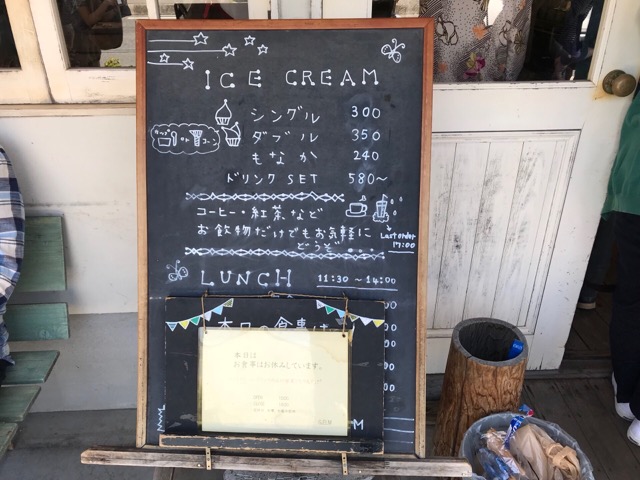 ICE CREAM
シングル 300
カップ or コーン
ダブル 350
もなか 240
ドリンク SET 580~
コーヒー・紅茶など
お飲物だけでもお気軽に
どうぞ
Last order
17:00
LUNCH 11:30 ~ 14:00
本日の食事は
本日は
お食事はお休みしています。